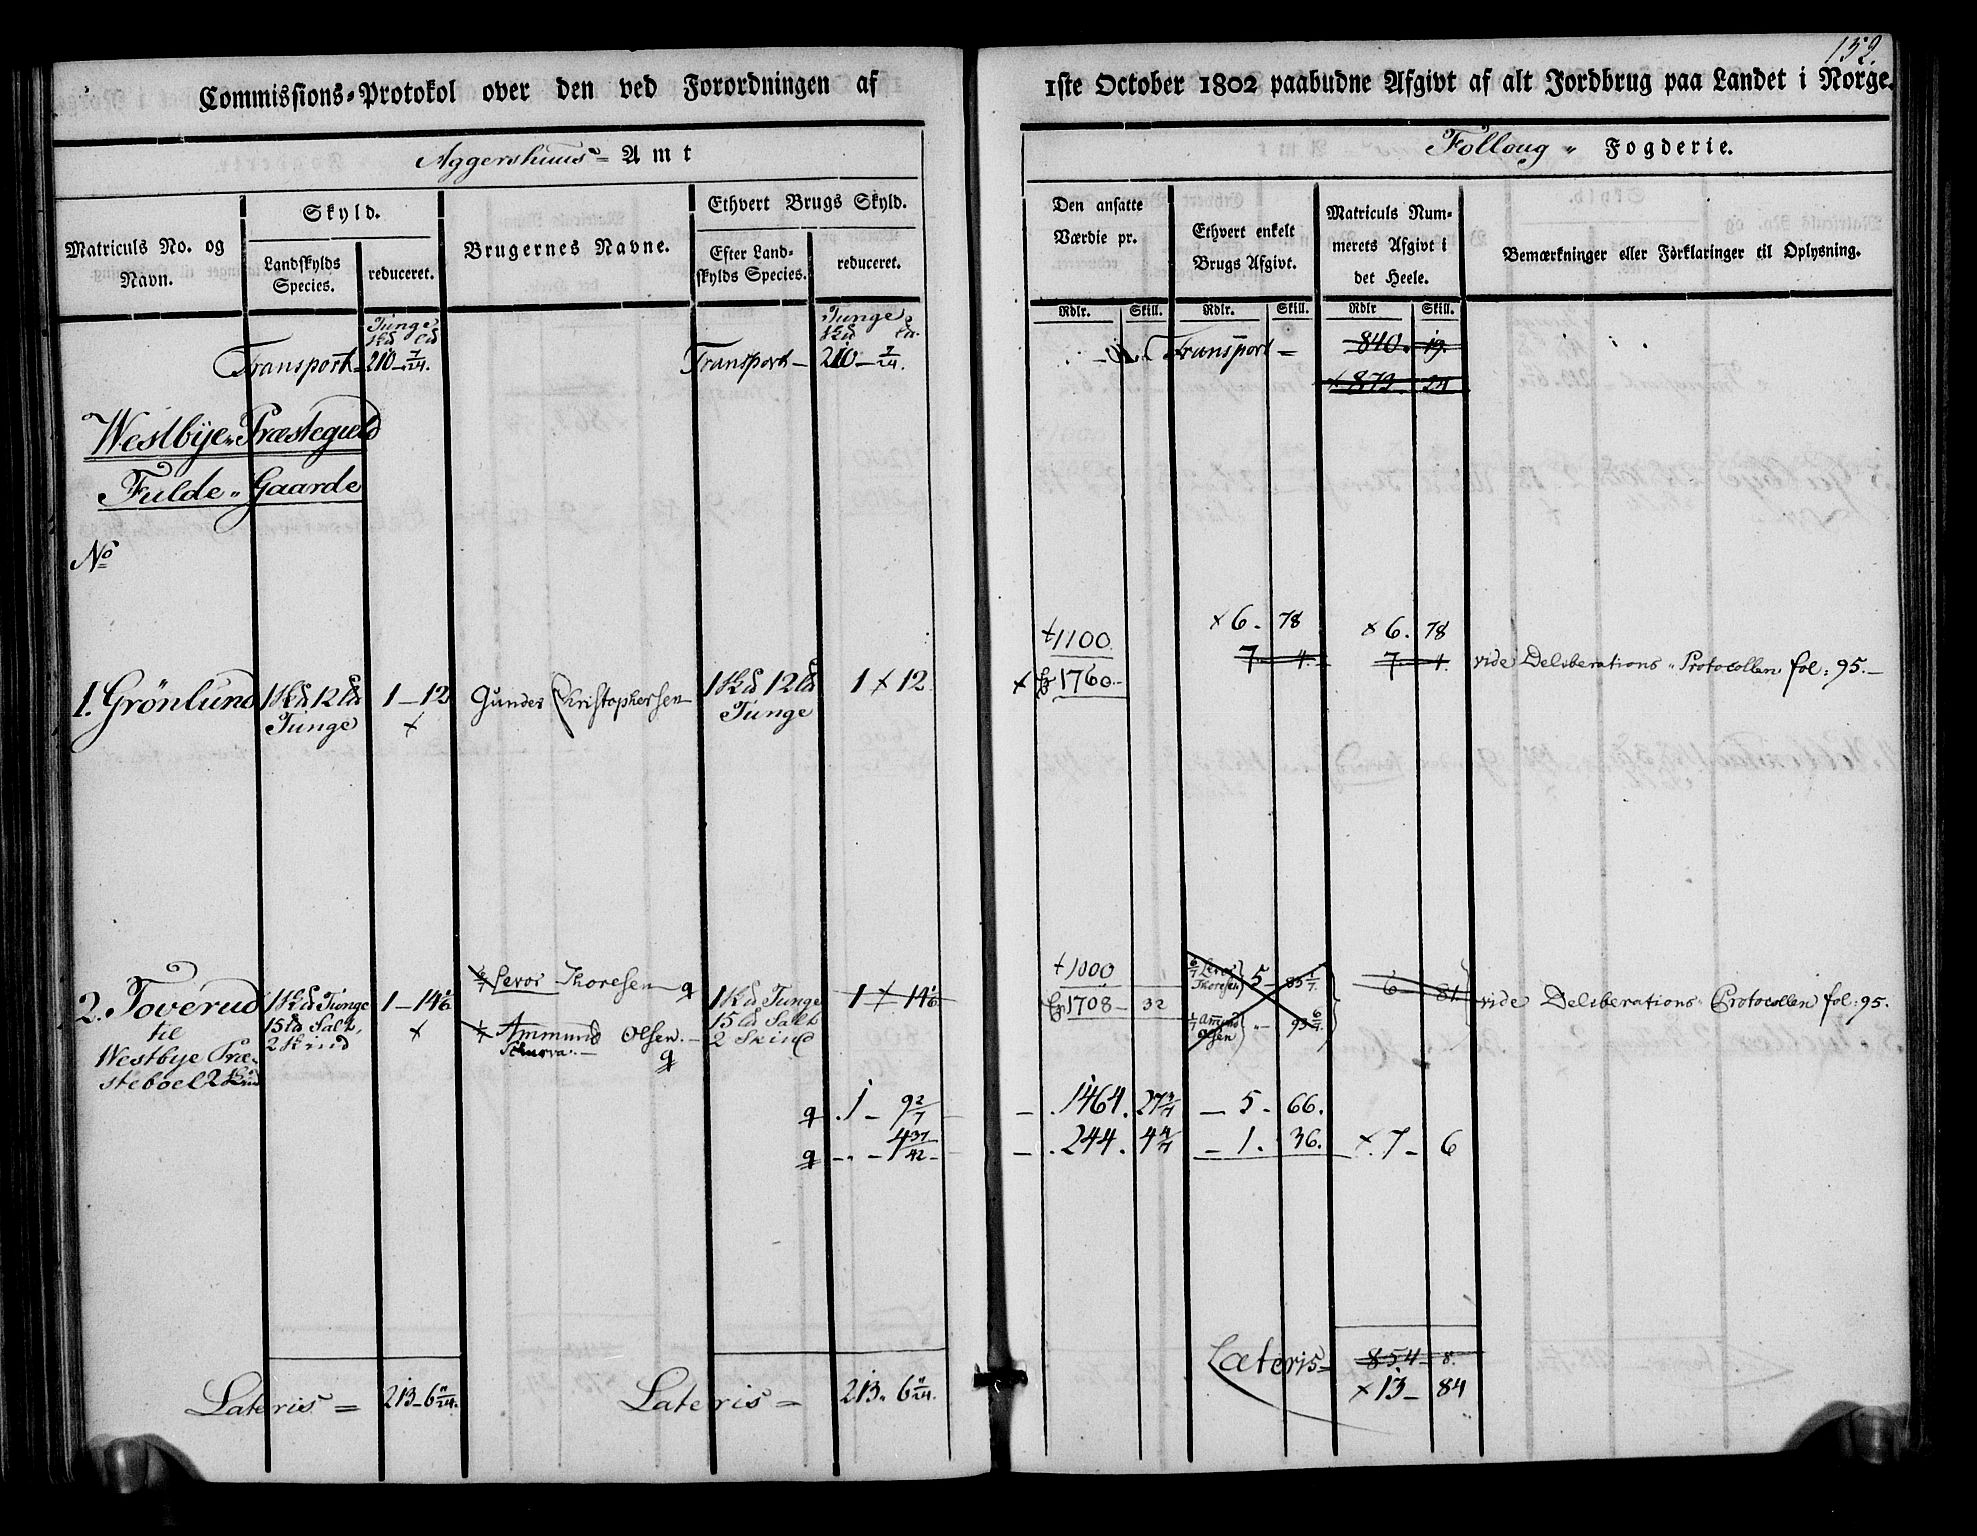 152.
Commissions-Protokol over den ved Forordningen af 1ste October 1802 paabudne Afgivt af alt Jordbrug paa Landet i Norge.
Aggershuus = Amt
Folloug " Fogderie.
Matriculs No. og Navn.
Skyld.
Landskylds Species.
reduceret.
Brugernes Navne.
Ethvert Brugs Skyld.
Efter Landskylds Species.
reduceret.
Den ansatte Værdie pr.
Ethvert enkelt Brugs Afgivt.
Matriculs Nummerets Afgivt i det Heele.
Bemærkninger eller Forklaringer til Oplysning.
Rdlr. Skill. Rdlr. Skill. Rdlr Skill.
Tunge
Tunge
Transport - 210 - 7/24.
Transport - 210 - 7/24.
Transport = 840. 19.
+ 873. 24
Westbye Præstegield
Fulde " Gaarde
No
+1100
+ 6. 78
+ 6. 78
1. Grönlund
Tunge
1 - 12
+
Gunder Christophersen
Tunge
1 + 12
1760.-
7 - 4.
7 - 4.
vide Delsberations " Protocollen fol: 95.-
2. Toverud
til
Westbye Præ-
steboel 2
Tunge
15 Salt,
2 Skind
1 - 14 1/6
+
6/7 Sevor Thoresen q
1/7 Ammund Olsen. -
q
Tunge
15 Salt
2 Skind
1 + 14 1/6
+1000
1708 - 32
6/7 Sevor Thoresen 5 - 83 1/7.
1/7 Amund Olsen " - 93 6/7.
6 - 81.
vide Delsberations " Protocollen fol: 95.
q 1 - 9 2/7
- 1464. 27 3/7 - 5 - 66.
q - " - 4 37/42 -
- 244. 4 4/7 - 1. 36. + 7 - 6
Lateris = 213 - 6 11/24.
Lateris = 213. 6 11/24.
Lateris = 854 - 8.
+ 13 - 84